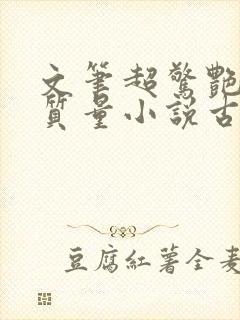 文筆超驚艷
質量小説古
豆腐紅薯全麦